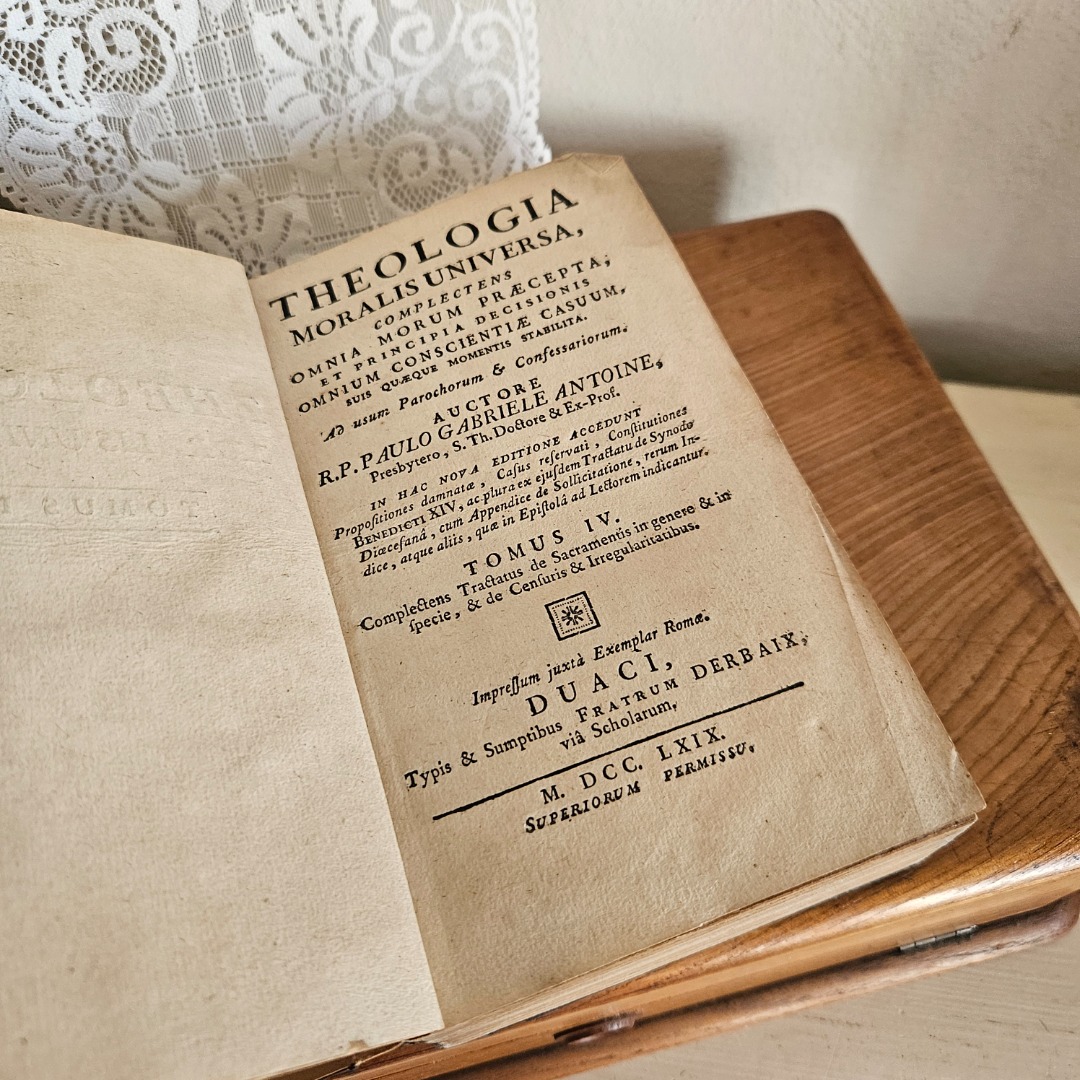 THEOLOGIA
MORALIS UNIVERSA,
COMPLECTENS
OMNIA MORUM PRÆCEPTA,
ET PRINCIPIA DECISIONIS
OMNIUM CONSCIENTIÆ CASUUM,
SUIS QUÆQUE MOMENTIS STABILITA.
Ad usum Parochorum & Confessariorum.
AUCTORE
R.P. PAULO GABRIELE ANTOINE,
Presbytero, S. Th. Doctore & Ex-Prof.
IN HAC NOVA EDITIONE ACCEDUNT
Propoſitiones damnatæ, Caſus reſervati, Conſtitutiones
BENEDICTI XIV, ac plura ex ejuſdem Tractatu de Synodo
Diœceſanâ, cum Appendice de Sollicitatione, rerum In-
dice, atque aliis, quæ in Epiſtolâ ad Lectorem indicantur.
TOMUS IV.
Complectens Tractatus de Sacramentis in genere & in
ſpecie, & de Cenſuris & Irregularitatibus.
Impreſſum juxtà Exemplar Romæ.
DUACI,
Typis & Sumptibus FRATRUM DERBAIX,
viâ Scholarum,
M. DCC. LXIX.
SUPERIORUM PERMISSU.